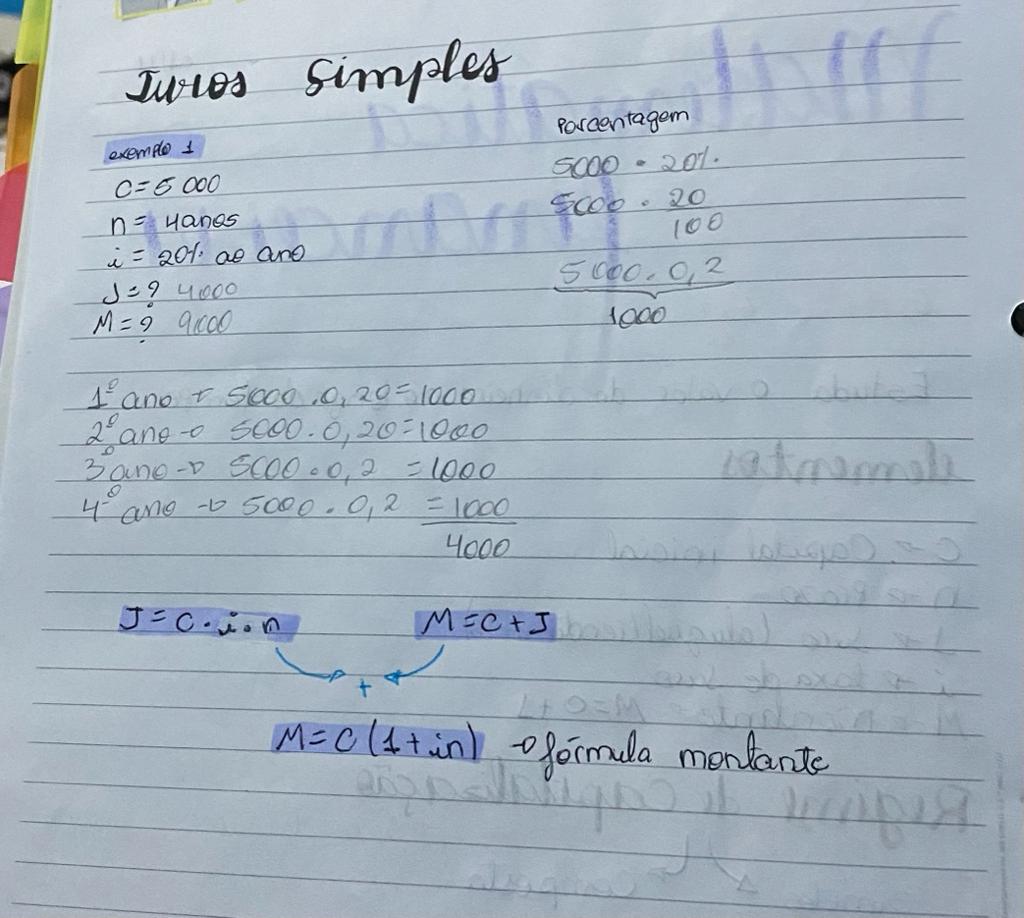 Juros Simples
exemplo 1
C=5 000
n= 4anos
i = 20% ao ano
J=? 4000
M=? 9000
Porcentagem
5000 • 20%
5000 . 20
100
5000. 0,2
1000
1º ano → 5000 .0,20=1000
2º ano → 5000. 0,20=1000
3º ano → 5000. 0,2 =1000
4º ano → 5000. 0,2 =1000
4000
J=C.i.n M=C+J
+
M=C(1+in) → fórmula montante